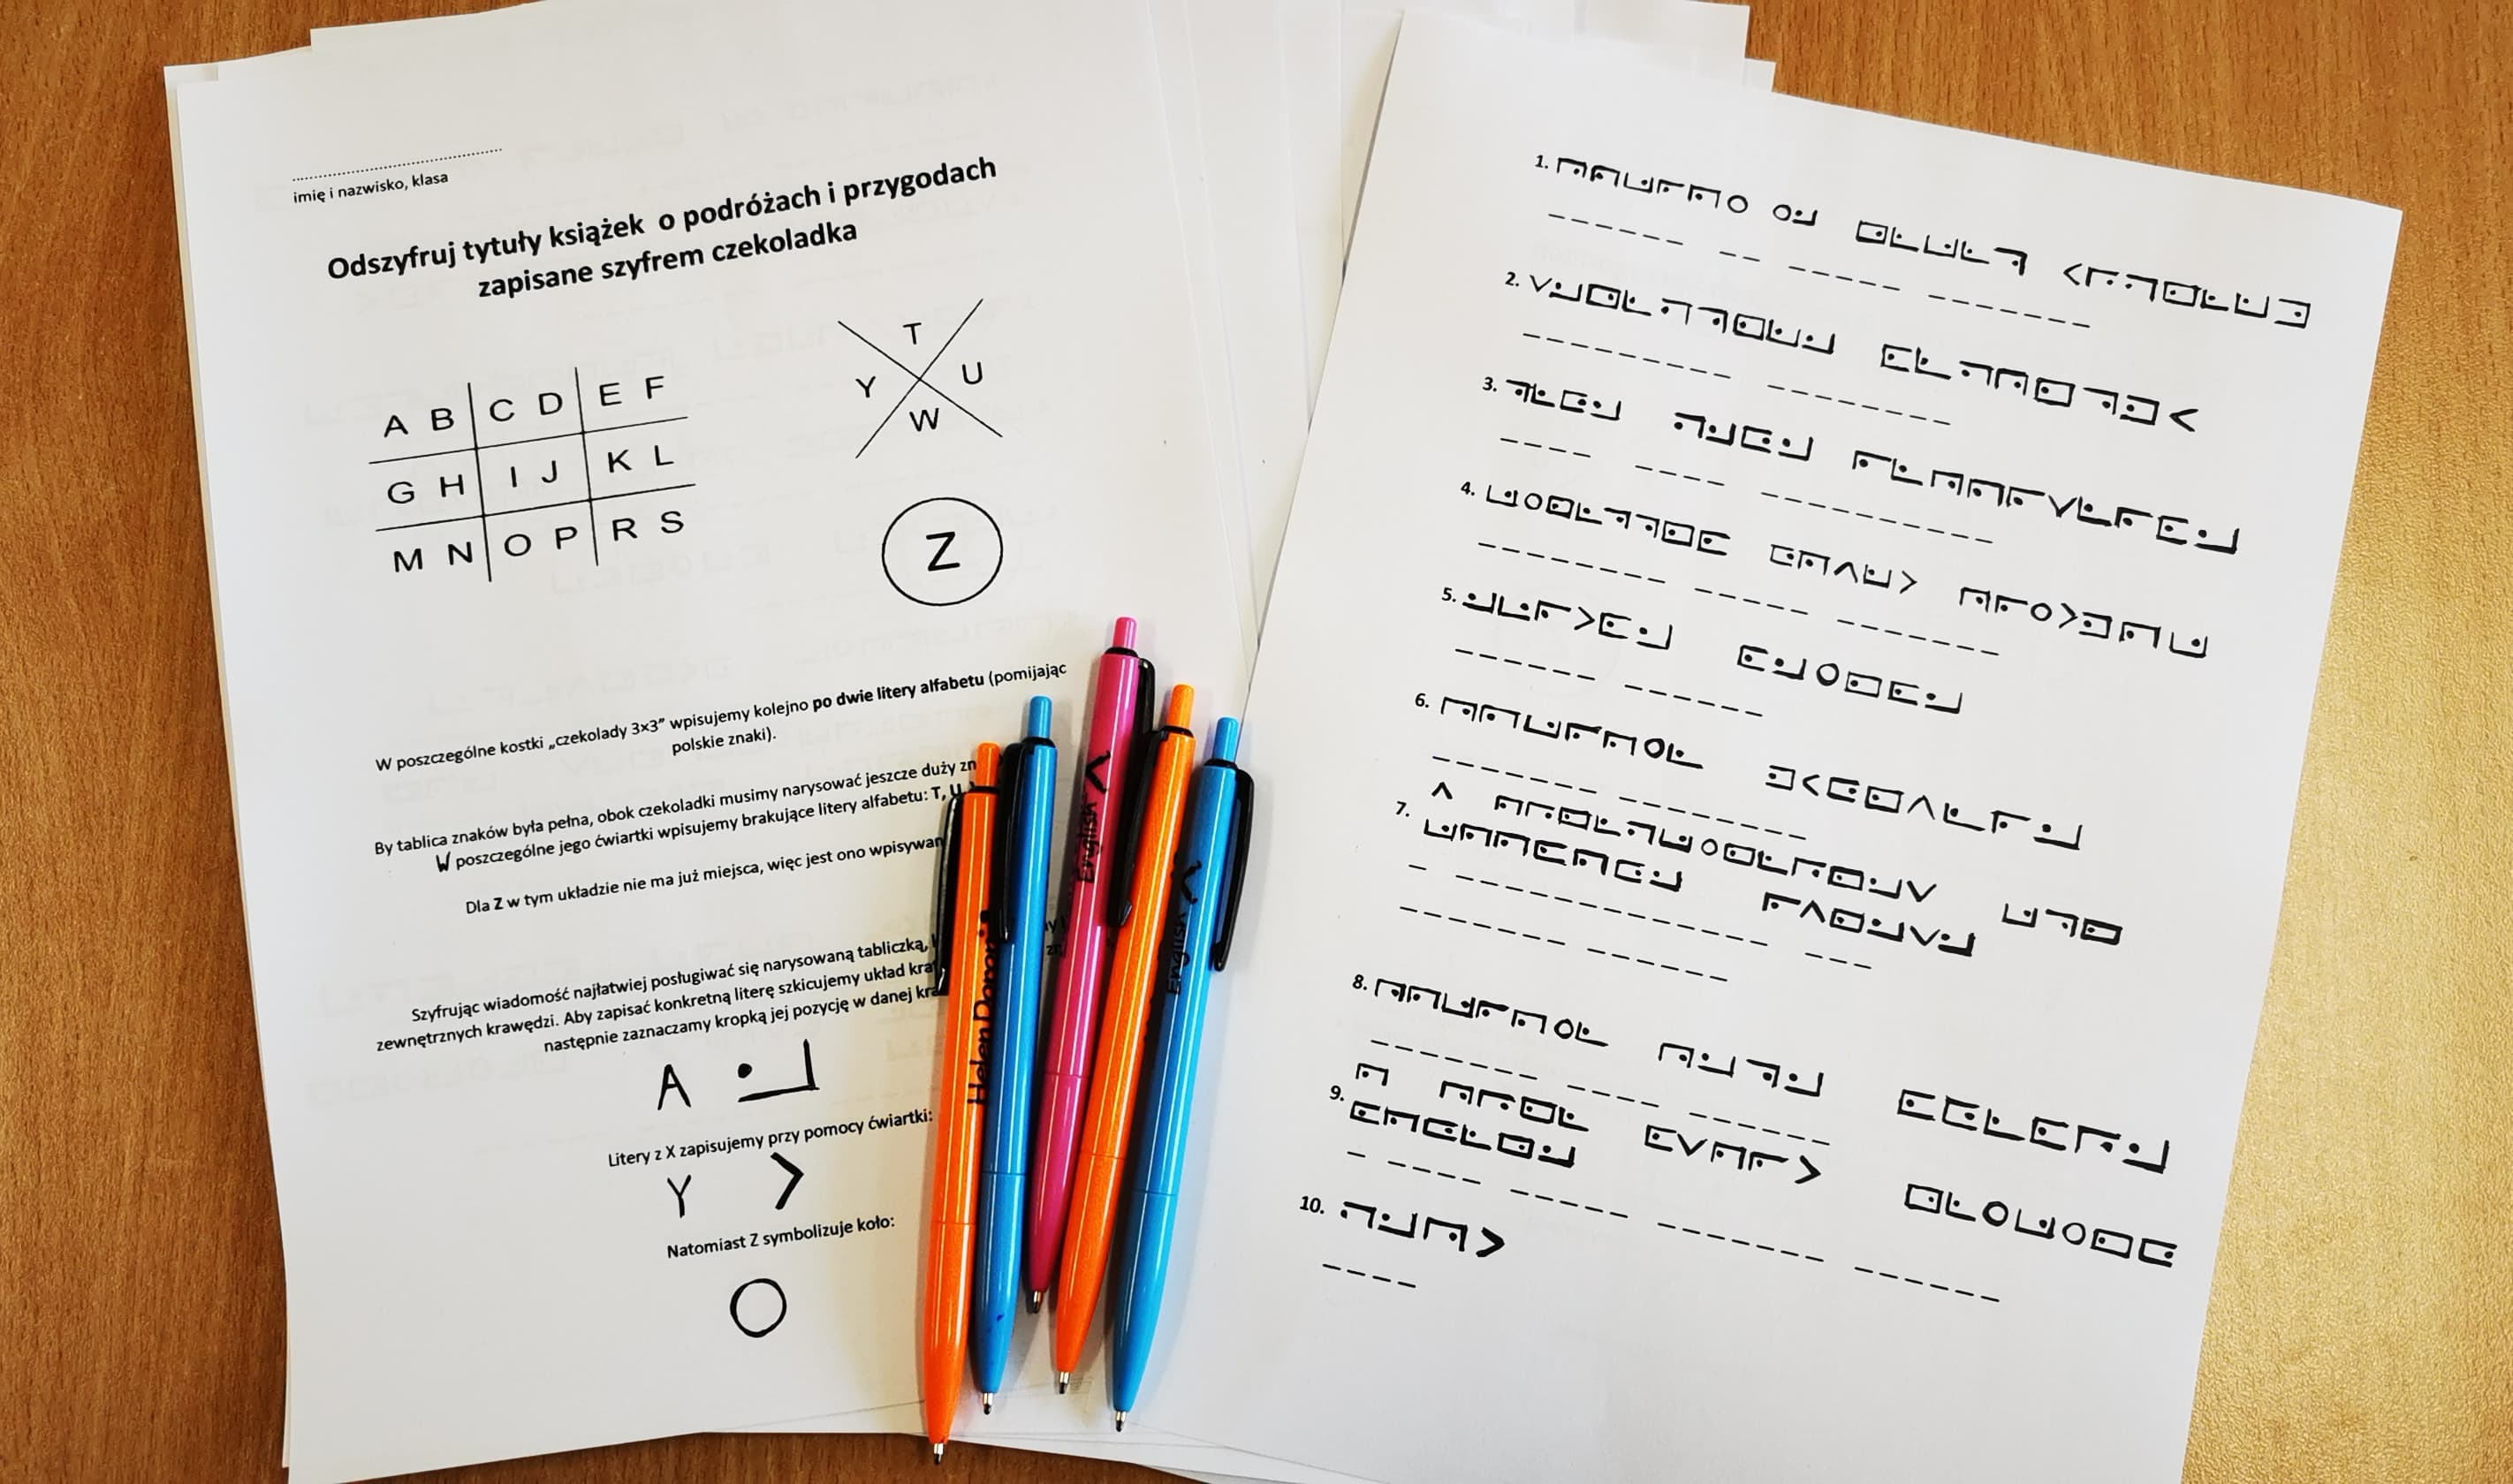 imię i nazwisko, klasa
Odszyfruj tytuły książek o podróżach i przygodach
zapisane szyfrem czekoladka
A B C D E F
G H I J K L
M N O P R S
T
Y U
W
Z
W poszczególne kostki „czekolady 3×3” wpisujemy kolejno po dwie litery alfabetu (pomijając
polskie znaki).
By tablica znaków była pełna, obok czekoladki musimy narysować jeszcze duży
W poszczególne jego ćwiartki wpisujemy brakujące litery alfabetu: T, U,
Dla Z w tym układzie nie ma już miejsca, więc jest ono
Szyfrując wiadomość najłatwiej posługiwać się narysowaną tabliczką,
zewnętrznych krawędzi. Aby zapisać konkretną literę szkicujemy układ
następnie zaznaczamy kropką jej pozycję w danej
A
Litery z X zapisujemy przy pomocy ćwiartki:
Y
Natomiast Z symbolizuje koło:
Helen Doron
English
English
1.
2.
3.
4.
5.
6.
7.
8.
9.
10.